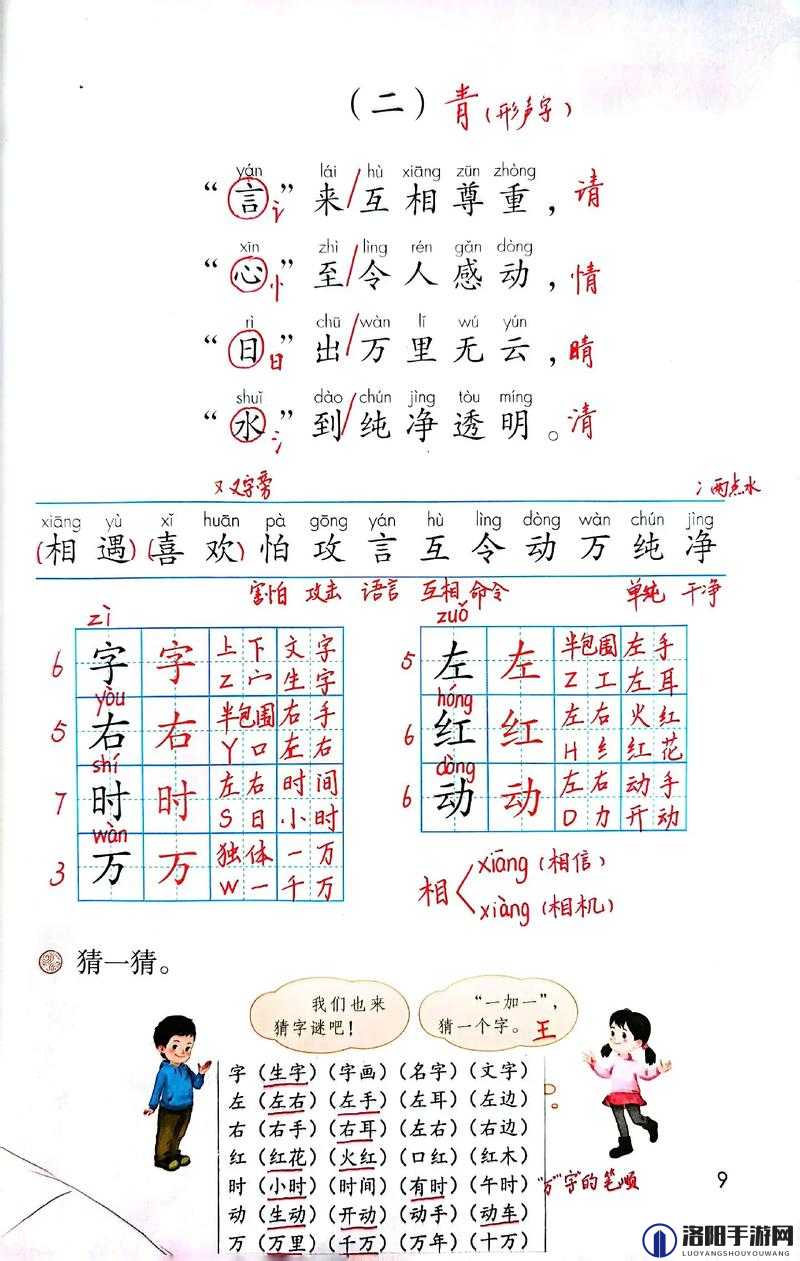 （二）青（形声字）
yán lái hù xiāng zūn zhòng
“言”讠来/互相尊重，请
xīn zhì lìng rén gǎn dòng
“心”忄至/令人感动，情
rì chū wàn lǐ wú yún
“日”日出/万里无云，晴
shuǐ dào chún jìng tòu míng
“水”氵到/纯净透明。清
又 又字旁 冫两点水
xiāng yù xǐ huān pà gōng yán hù lìng dòng wàn chún jìng
(相遇)(喜欢)怕攻言互令动万纯净
害怕 攻击 语言 互相 命令 单纯 干净
zì zuǒ
6 字 字 上下 文字 5 左 左 半包围 左手
Z 宀 生字 Z 工 左耳
yòu hóng
5 右 右 半包围 右手 6 红 红 左右 火红
Y 口 左右 H 纟 红花
shí dòng
7 时 时 左右 时间 6 动 动 左右 动手
S 日 小时 D 力 开动
wàn
3 万 万 独体 一万
W 一 千万
相 xiāng (相信)
xiàng (相机)
猜一猜。
我们也来
猜字谜吧！
“一加一”，
猜一个字。王
字（生字）（字画）（名字）（文字）
左（左右）（左手）（左耳）（左边）
右（右手）（右耳）（左右）（右边）
红（红花）（火红）（口红）（红木）
时（小时）（时间）（有时）（午时）
动（生动）（开动）（动手）（动车）
万（万里）（千万）（万年）（十万）
“万”字的笔顺
9
洛阳手游网
LUOYANGSHOUYOUWANG